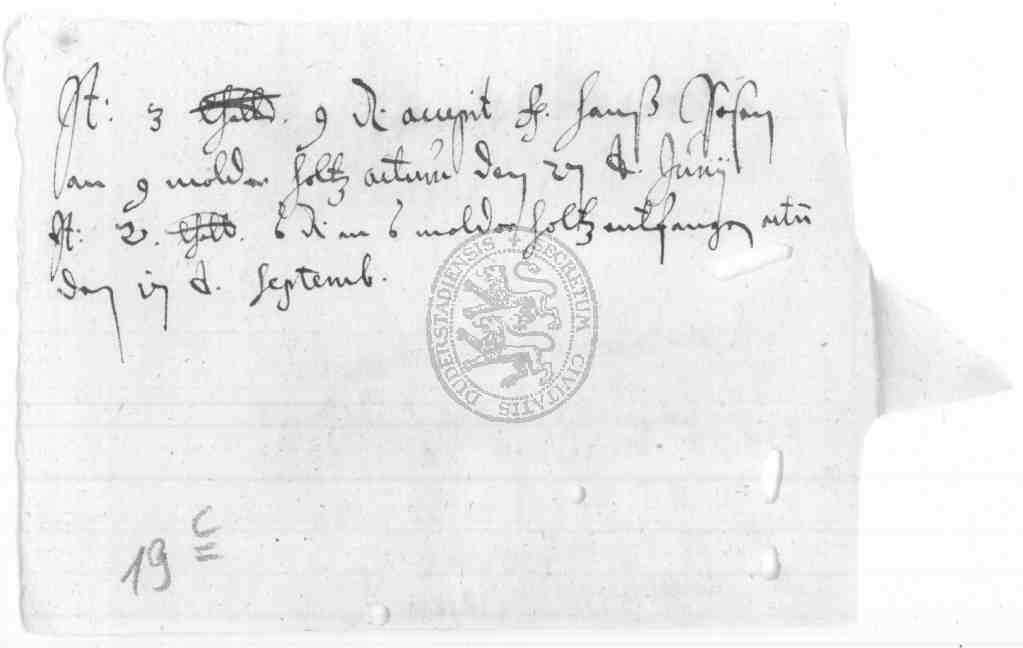 It: 3 thald. 9 d: accepit H. Hanß
an 9 molder holtz actum den 27 t. Junij
It: 2. thald. 6 d: an 6 molder holtz entfangen actū
den 17 t. Septemb.
SECRETUM CIVITATIS DUDERSTADIENSIS
19 c